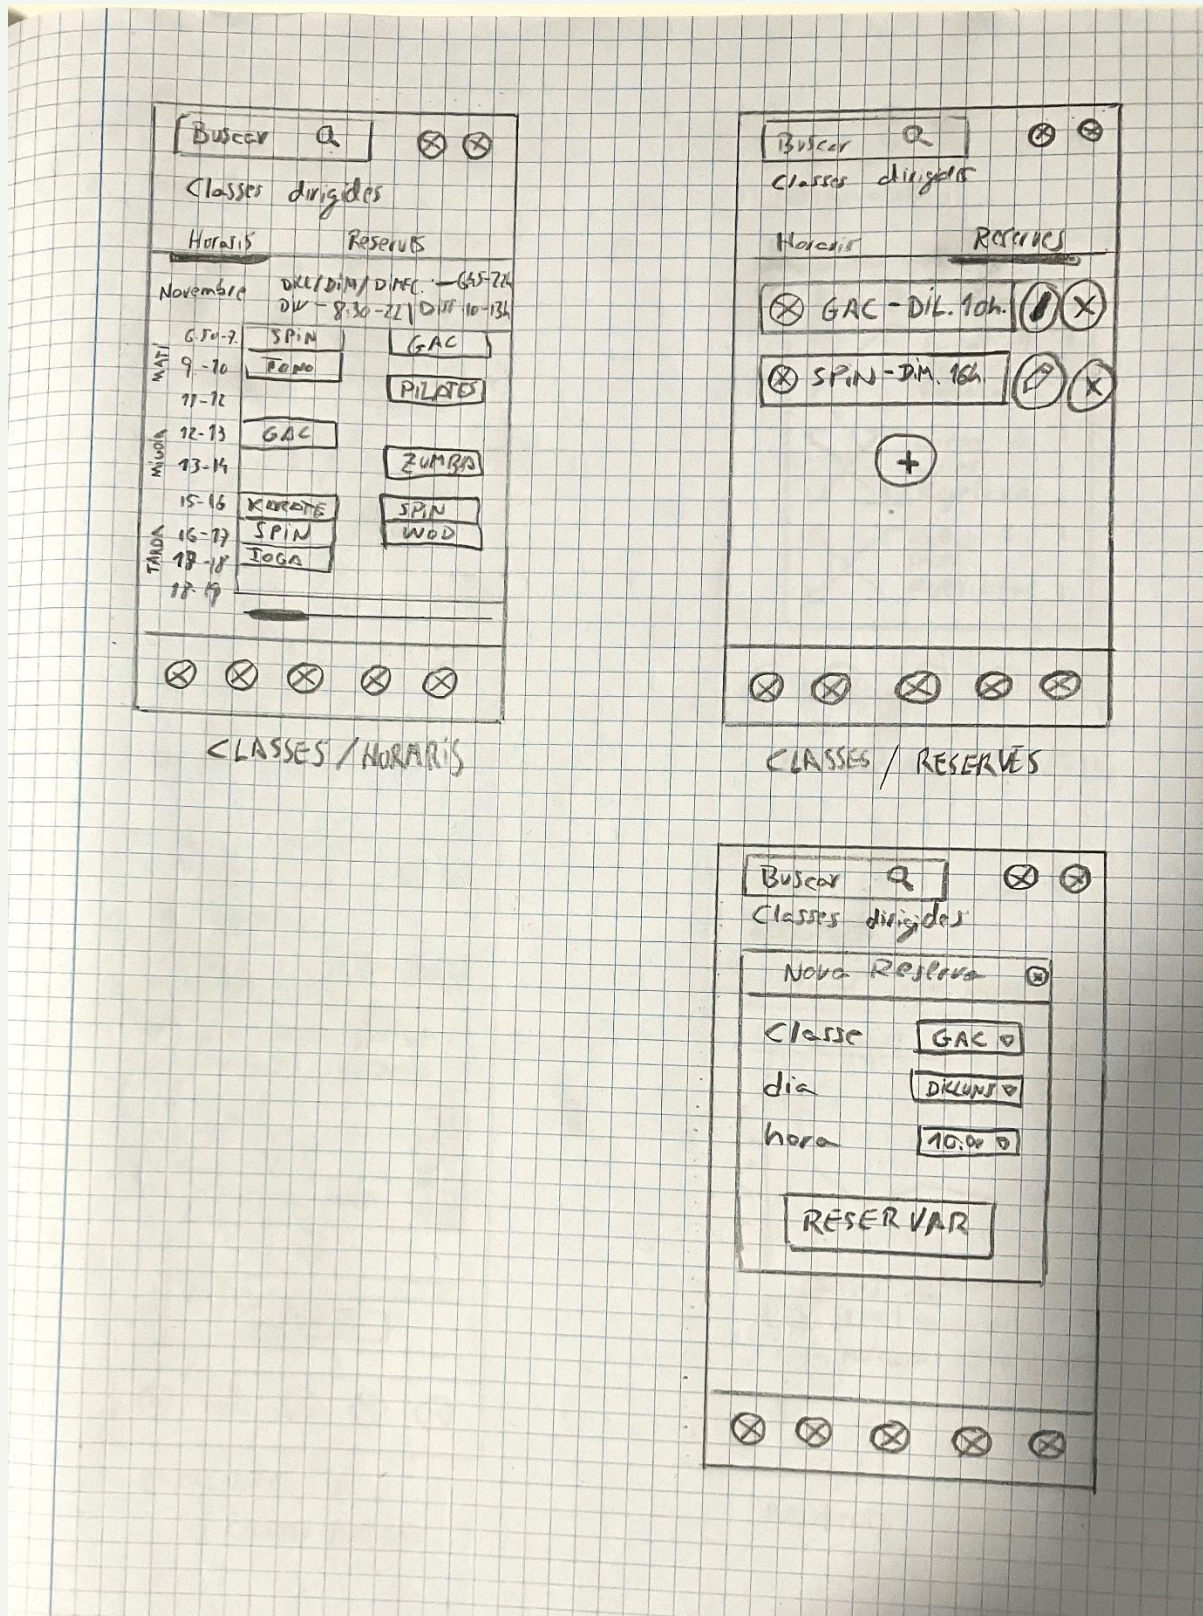 Buscar
Classes dirigides
Horaris Reserves
Novembre
DILL/DIM/DIMEC. — 6:45-22h
DIV - 8:30-22 | DISS 10-13h
MATÍ
SPIN GAC
9-10
PILATES
11-12
MIGDIA
12-13 GAC
13-14 ZUMBA
TARDA
15-16 KARATE SPIN
16-17 SPIN WOD
IOGA
CLASSES / HORARIS
Buscar
Classes dirigides
Horaris Reserves
GAC - DIL. 10h. X
SPIN - DIM. 16h X
+
CLASSES / RESERVES
Buscar
Classes dirigides
Nova Reserva
Classe GAC
dia DILLUNS
hora 10:00
RESERVAR